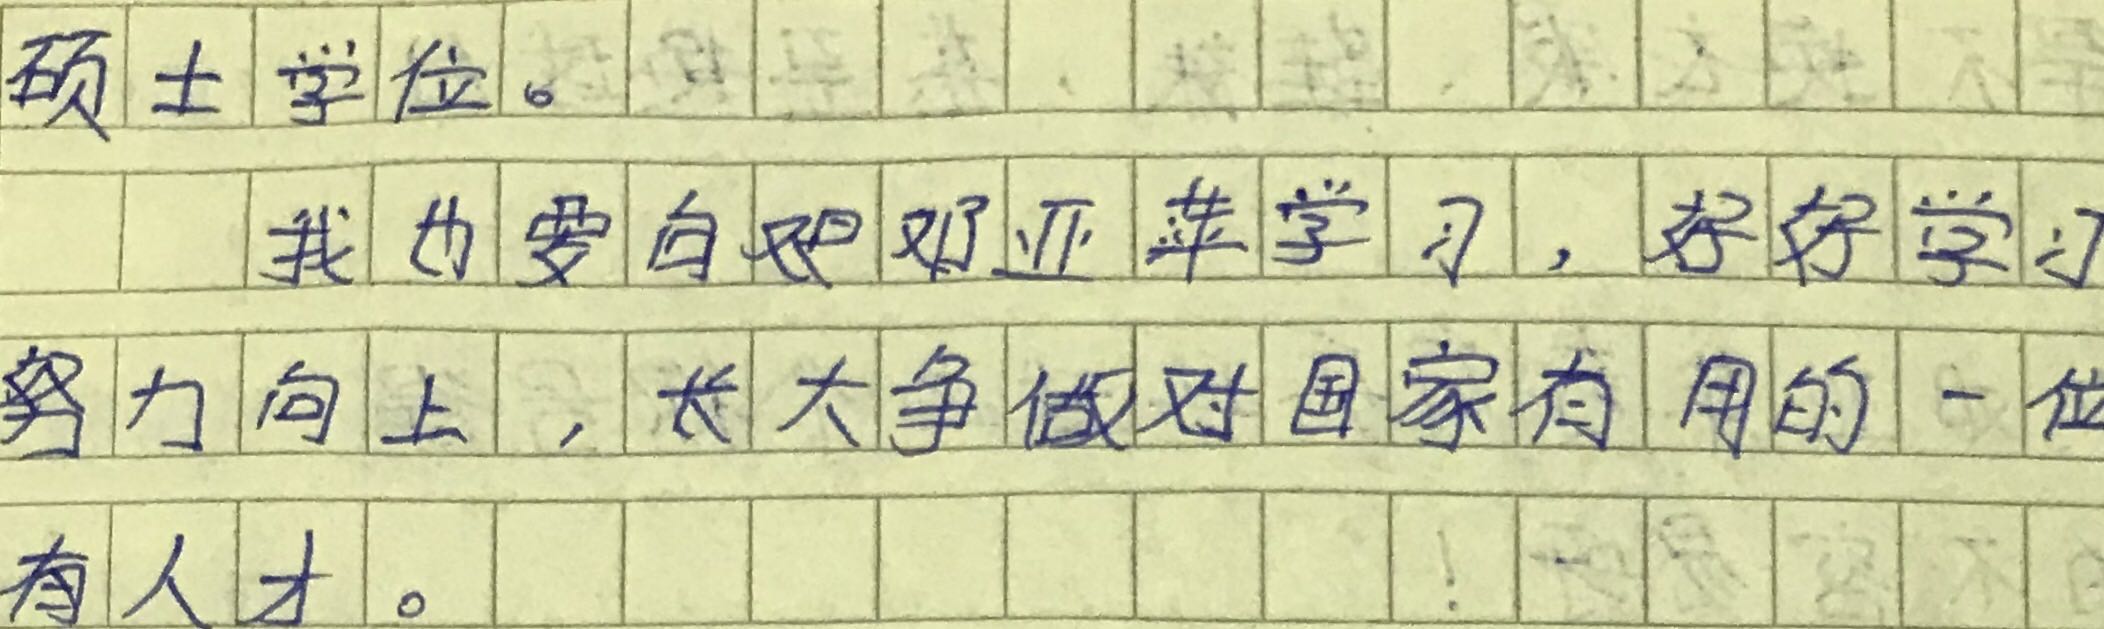 硕士学位。
我也要向邓亚萍学习，好好学习
努力向上，长大争做对国家有用的一位
有人才。